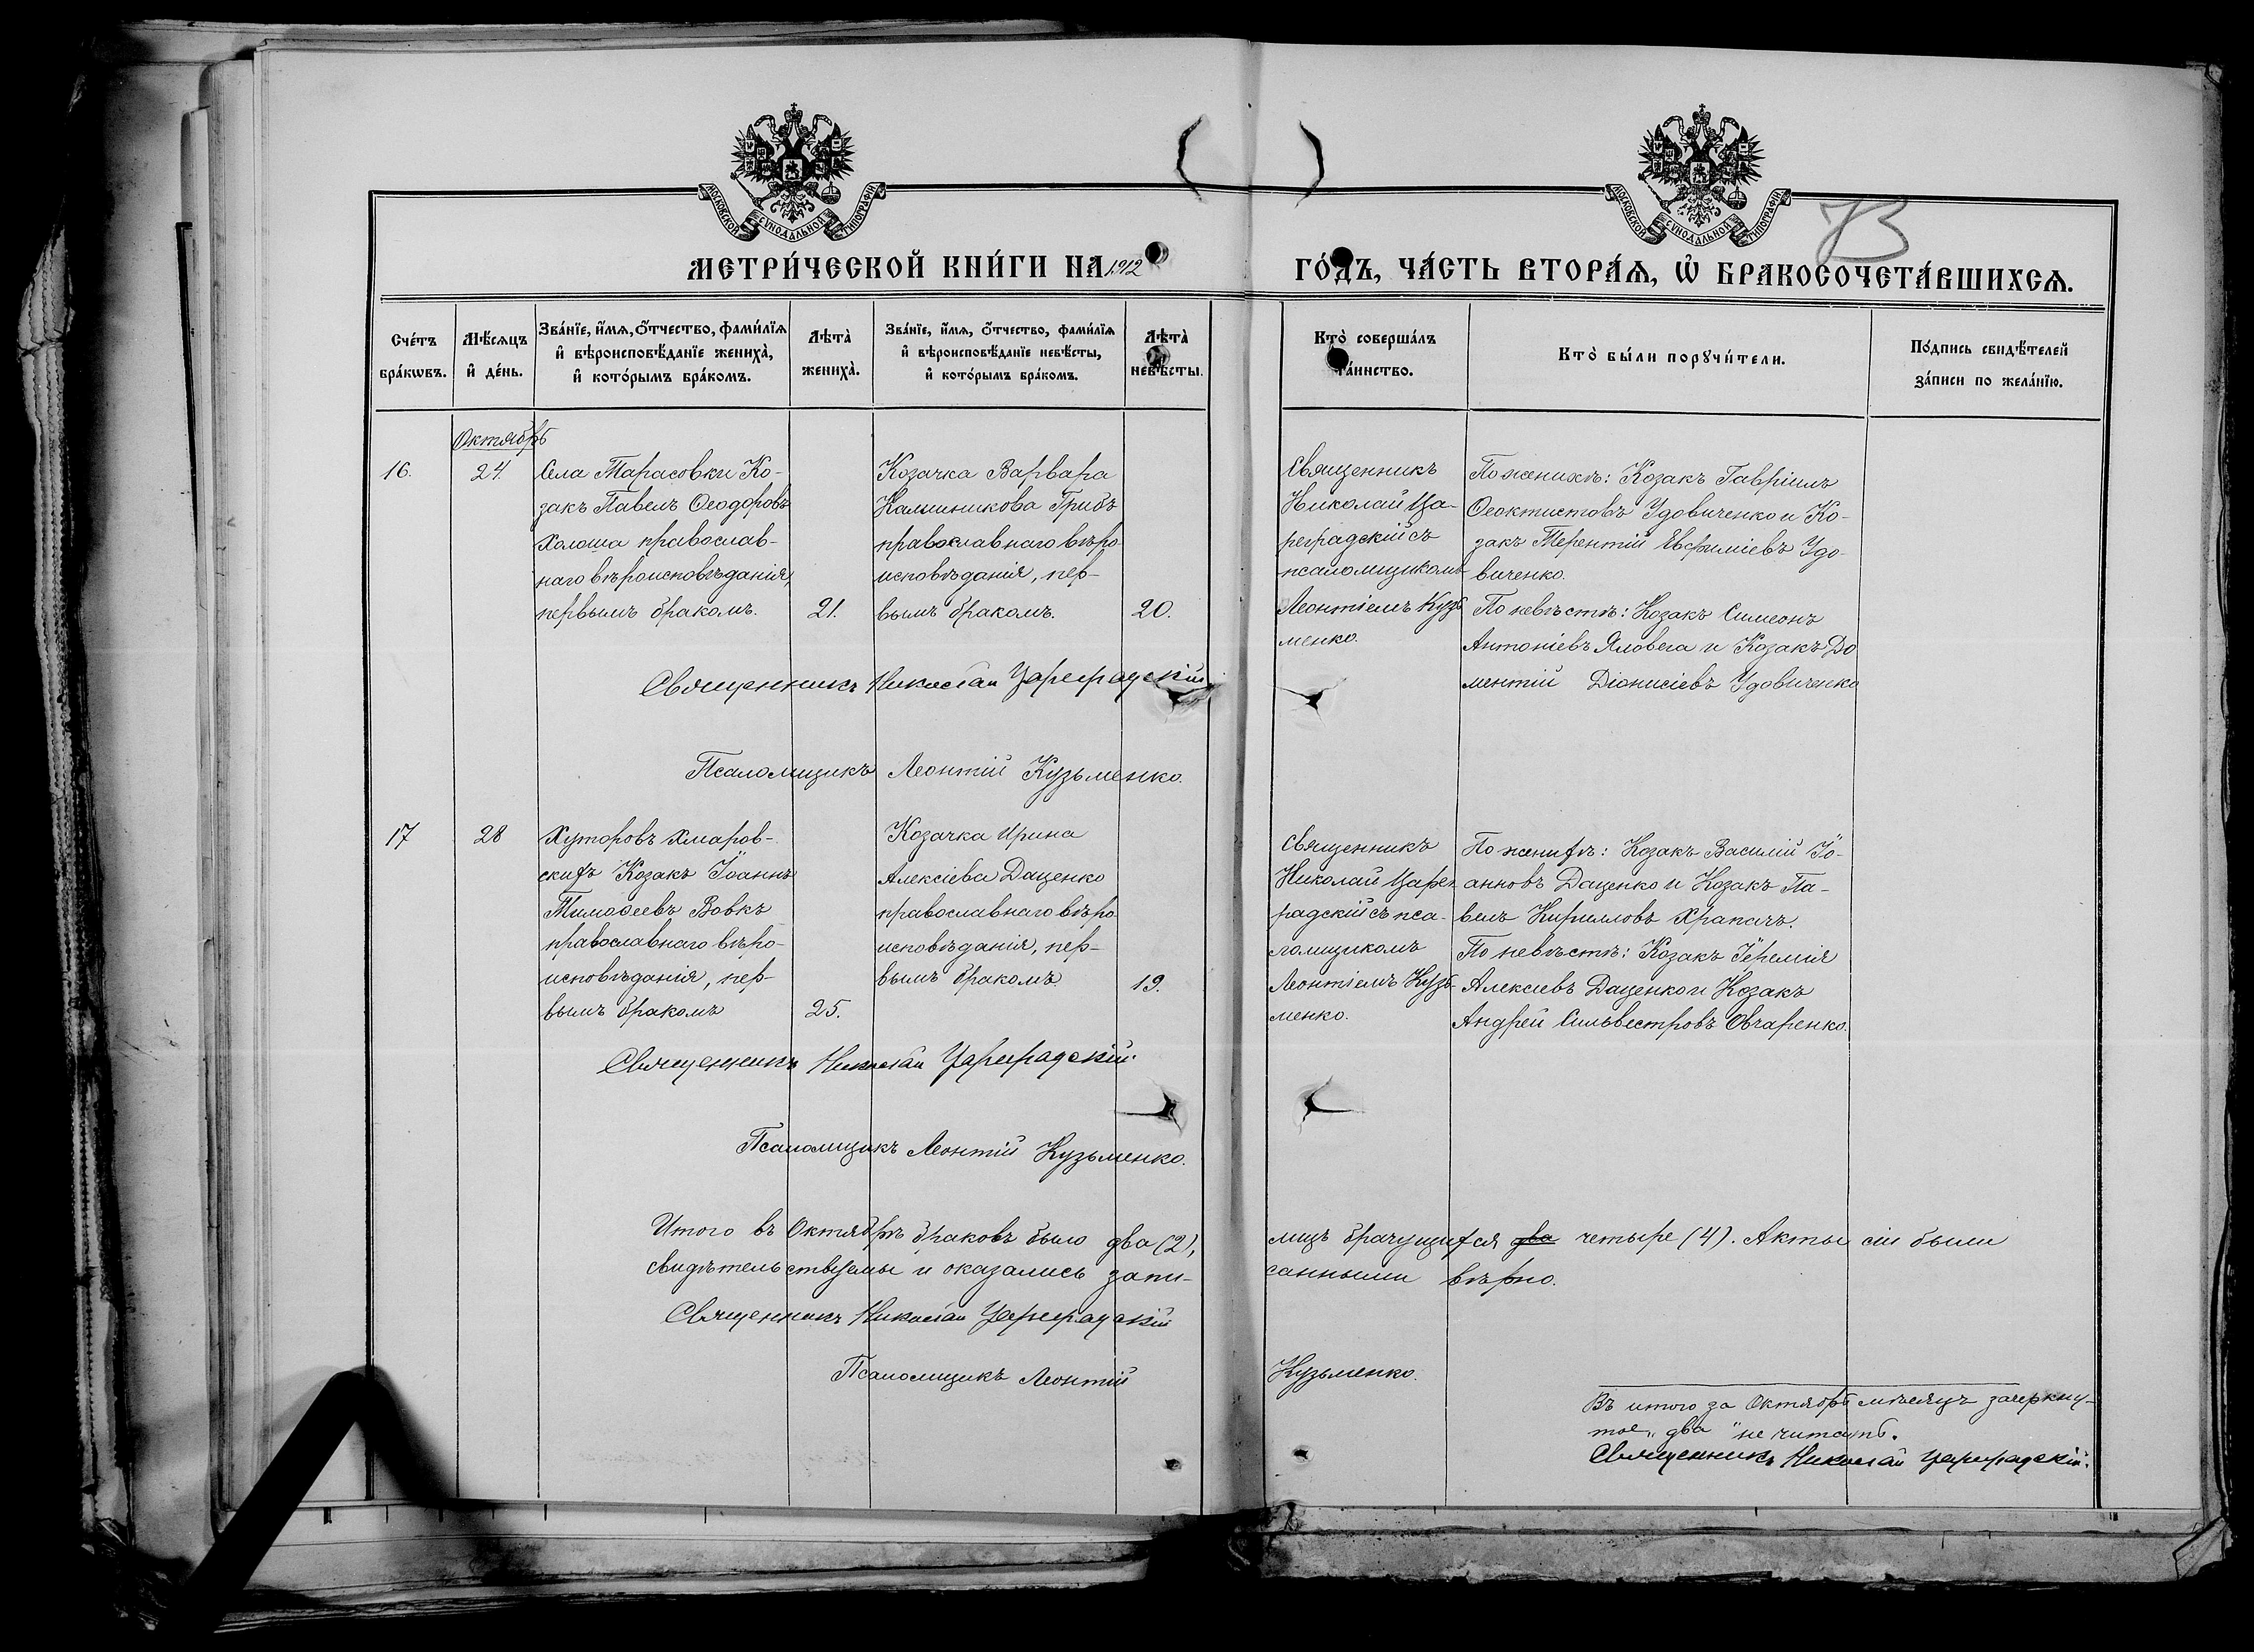 МОСКОВСКОЙ СѴНОДАЛЬНОЙ ТИПОГРАФІИ
МОСКОВСКОЙ СѴНОДАЛЬНОЙ ТИПОГРАФІИ
73
МЕТРИ́ЧЕСКОЙ КНИ́ГИ НА 1912
ГО́ДЪ, ЧА́СТЬ ВТОРА́Ѧ, Ѽ БРАКОСОЧЕТА́ВШИХСѦ.
Сче́тъ
бра́кѡвъ.
Мѣ́сѧцъ
и҆ де́нь.
Зва́нїе, и҆́мѧ, ѻ҆́тчество, фами́лїѧ
и҆ вѣроисповѣ́данїе жениха̀,
и҆ кото́рымъ бра́комъ.
Лѣта̀
жениха̀.
Зва́нїе, и҆́мѧ, ѻ҆́тчество, фами́лїѧ
и҆ вѣроисповѣ́данїе невѣ́сты,
и҆ кото́рымъ бра́комъ.
Лѣта̀
невѣ́сты.
Кто̀ соверша́лъ
та́инство.
Кто̀ бы́ли порꙋчи́тели.
По́дпись свидѣ́телей
за́писи по жела́нїю.
Октябрь
16.
24.
Села Тарасовки Ко-
закъ Павелъ Ѳеодоровъ
Холоша православ-
наго вѣроисповѣданія,
первымъ бракомъ.
21.
Козачка Варвара
Калинникова Грибъ
православнаго вѣро
исповѣданія, пер-
вымъ бракомъ.
20.
Священникъ
Николай Ца-
реградскій съ
псаломщикомъ
Леонтіемъ Кузь
менко.
По женихѣ: Козакъ Гавріилъ
Ѳеоктистовъ Удовиченко и Ко-
закъ Терентій Евфиміевъ Удо-
виченко.
По невѣстѣ: Козакъ Симеонъ
Антоніевъ Яловега и Козакъ До
ментій Діонисіевъ Удовиченко
Священникъ Николай Цареградскій
Псаломщикъ Леонтій Кузьменко.
17
28
Хуторовъ Хмаров-
скихъ Козакъ Іоаннъ
Тимоѳеевъ Вовкъ
православнаго вѣро-
исповѣданія, пер-
вымъ бракомъ
25.
Козачка Ирина
Алексіева Даценко
православнаго вѣро
исповѣданія, пер-
вымъ бракомъ.
19.
Священникъ
Николай Царег
радскій съ пса-
ломщикомъ
Леонтіемъ Кузь-
менко.
По женихѣ: Козакъ Василій Іо-
анновъ Даценко и Козакъ Па-
велъ Кирилловъ Храпачъ.
По невѣстѣ: Козакъ Іеремія
Алексіевъ Даценко и Козакъ
Андрей Сильвестровъ Овчаренко.
Священникъ Николай Цареградскій.
Псаломщикъ Леонтій Кузьменко.
Итого въ Октябрѣ браковъ было два (2), лицъ брачущихся два четыре (4). Акты сіи были
свидѣтельствуемы и оказались запи- санными вѣрно.
Священникъ Николай Цареградскій
Псаломщикъ Леонтій Кузьменко.
Въ итого за Октябрь мѣсяцъ зачеркну-
тое „два" не читать.
Священникъ Николай Цареградскій.